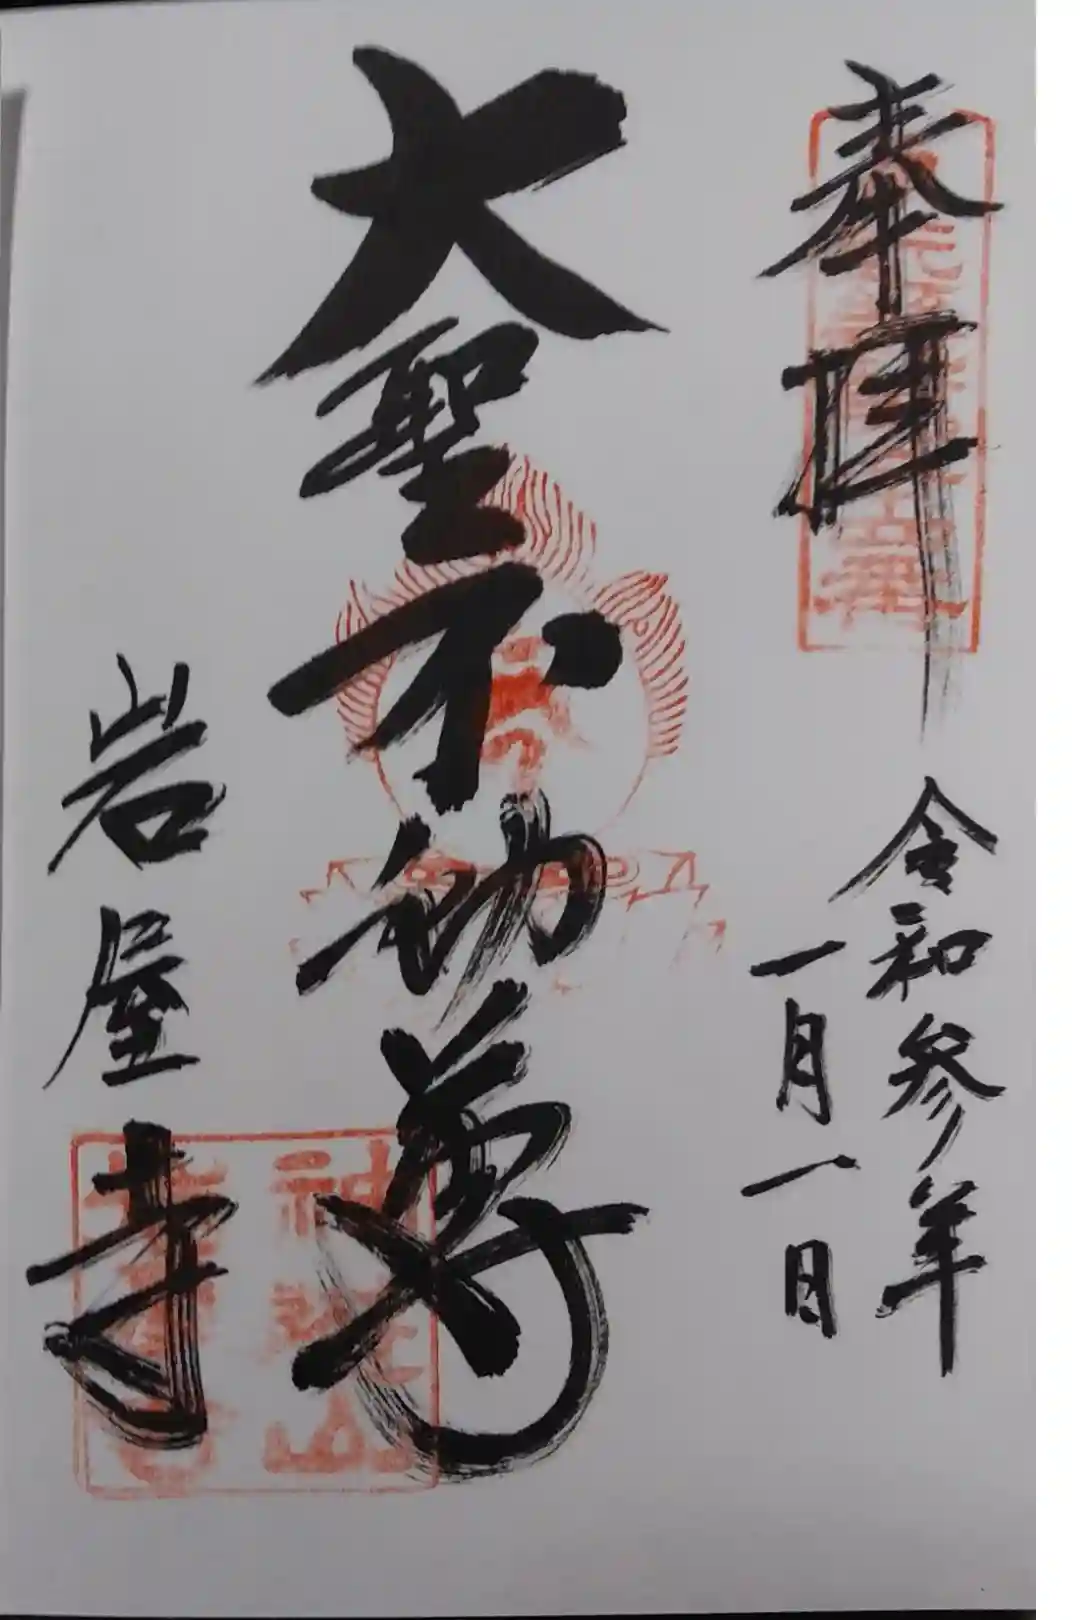 奉拝
令和参年
一月一日
大聖不動尊
岩屋寺